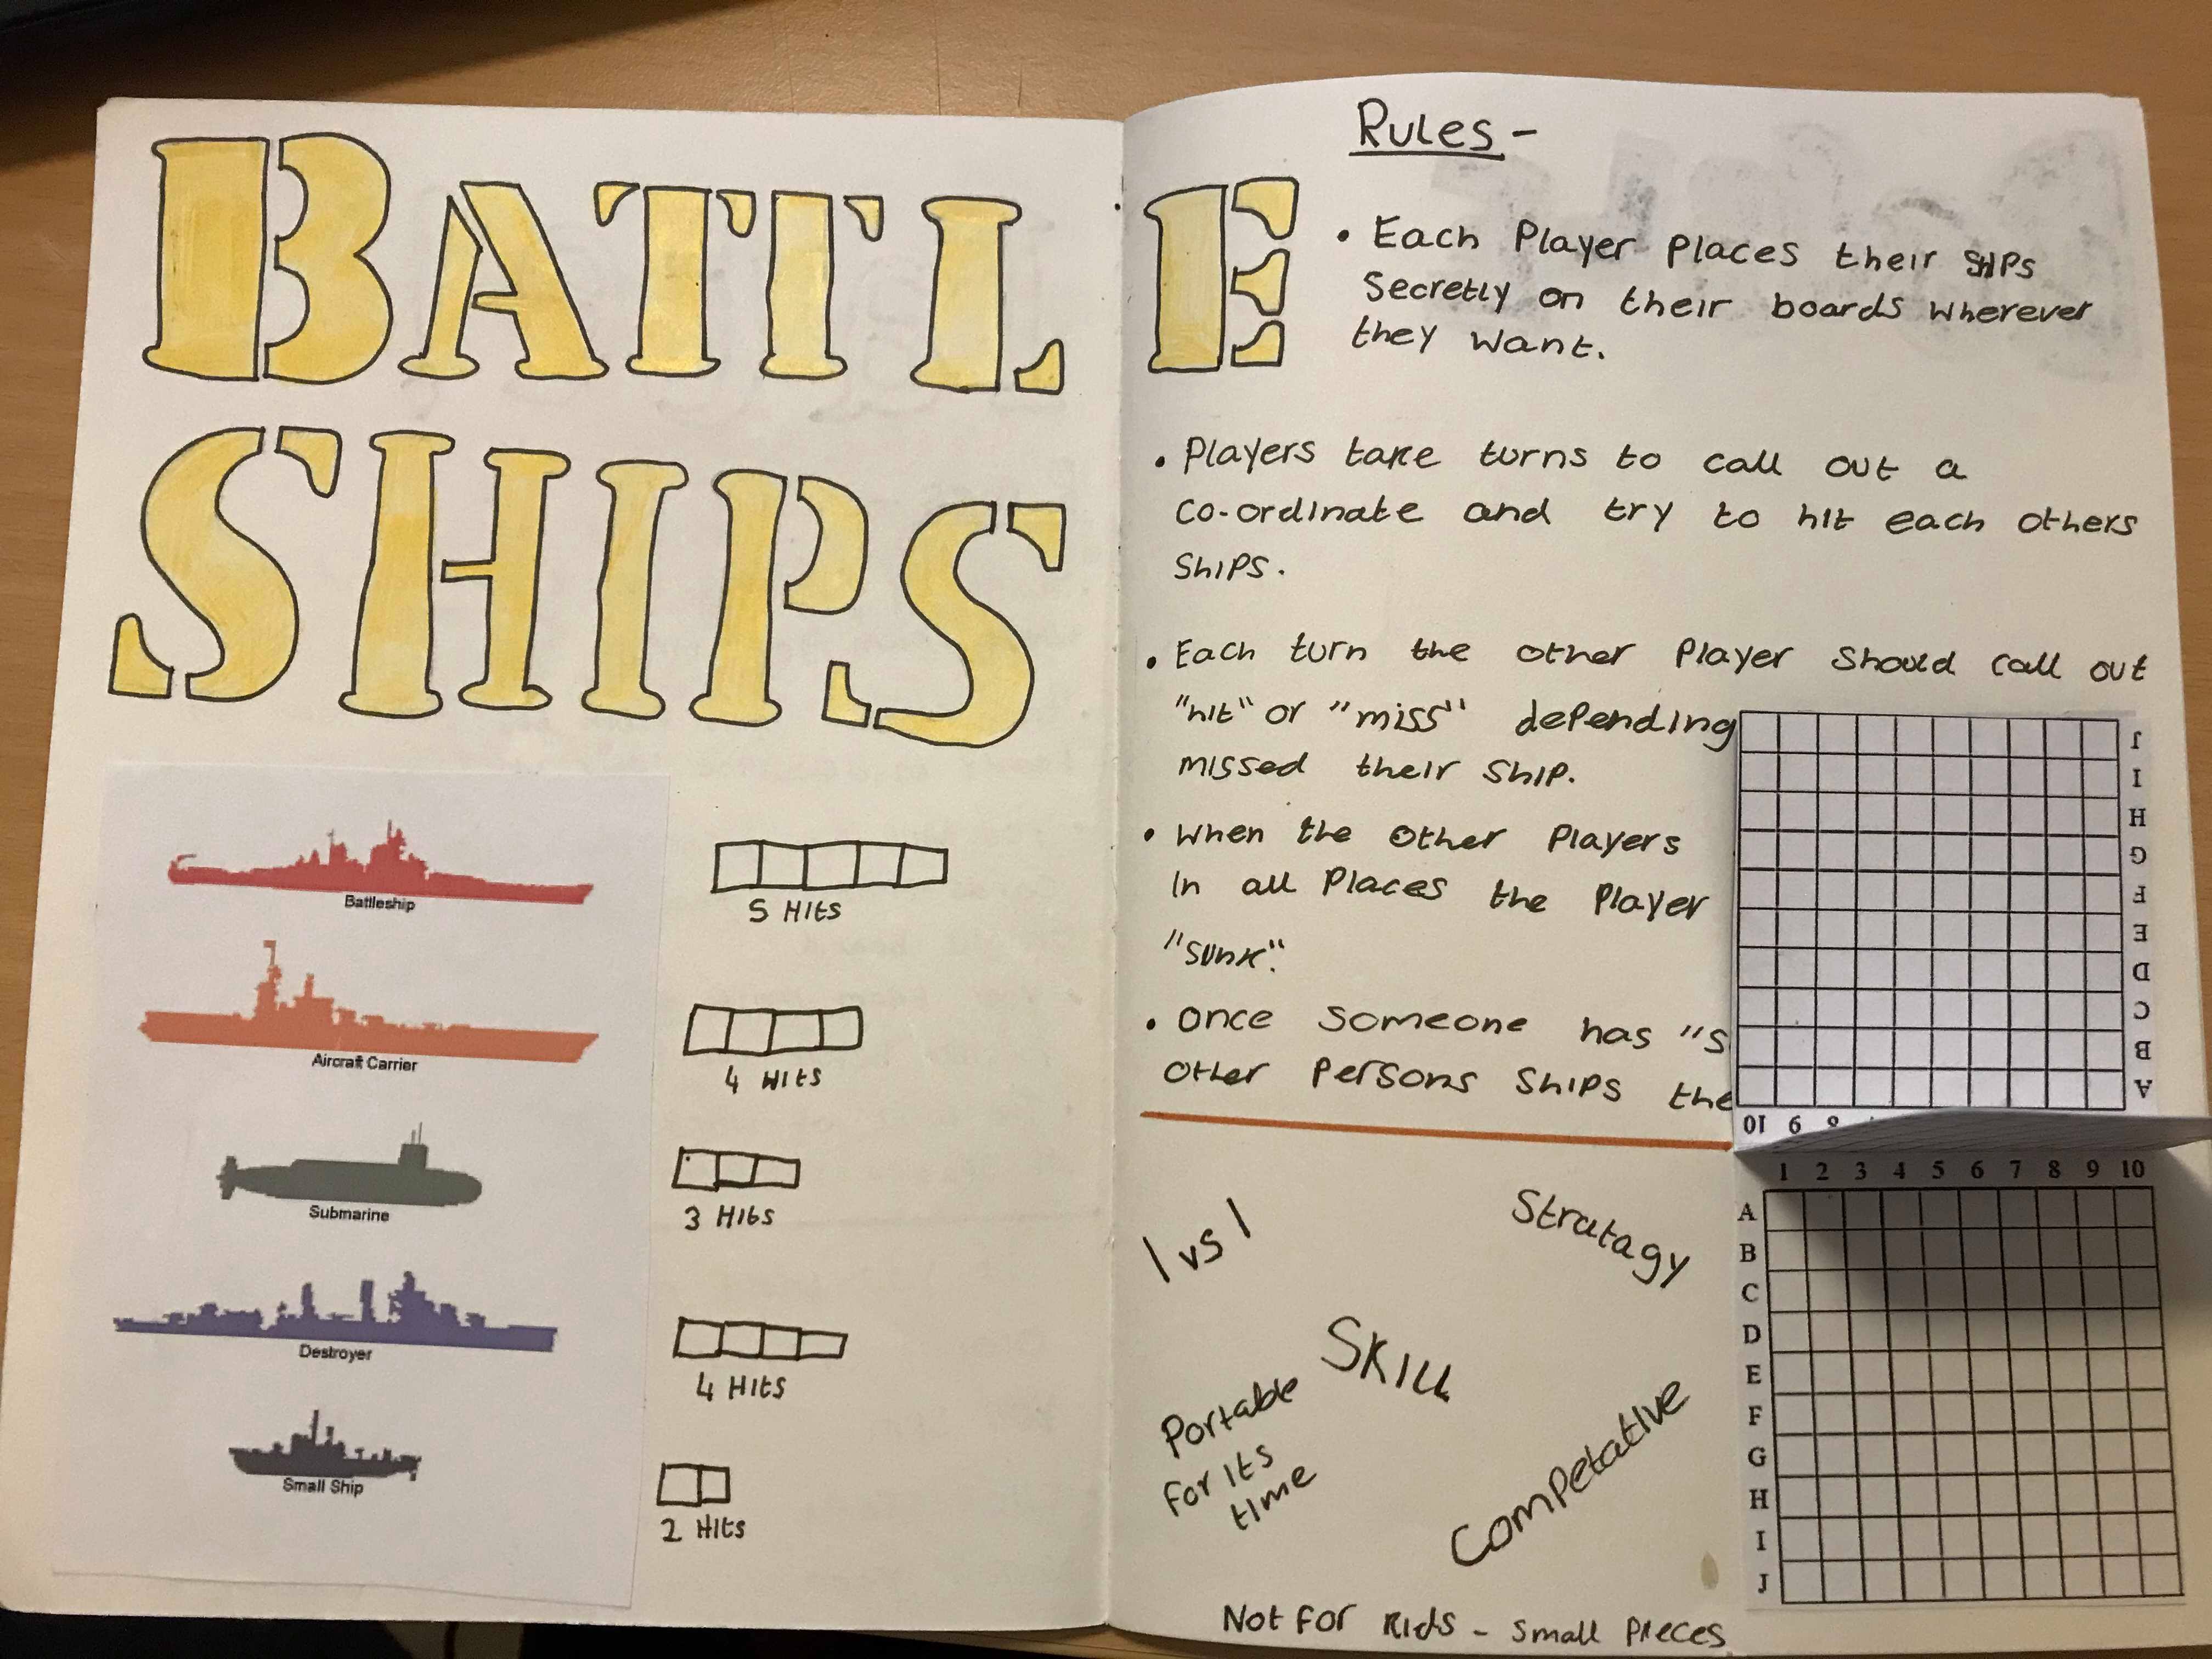 BATTLE
SHIPS
Battleship
5 Hits
Aircraft Carrier
4 Hits
Submarine
3 Hits
Destroyer
4 Hits
Small Ship
2 Hits
Rules -
• Each Player Places their ships
Secretly on their boards wherever
they want.
• Players take turns to call out a
co-ordinate and try to hit each others
ships.
• Each turn the other Player should call out
"hit" or "miss" depending
missed their ship.
• When the other Players
in all places the Player
"sunk".
• Once someone has "s
other persons ships the
1 vs 1
Stratagy
Skill
Portable
for its
time
Competative
Not for kids - small pieces
J
I
H
G
F
E
D
C
B
A
10 9
1 2 3 4 5 6 7 8 9 10
A
B
C
D
E
F
G
H
I
J